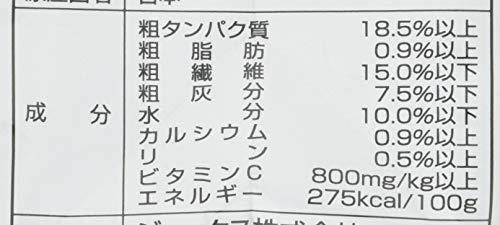 成分
粗タンパク質 18.5%以上
粗脂肪 0.9%以上
粗繊維 15.0%以下
粗灰分 7.5%以下
水分 10.0%以下
カルシウム 0.9%以上
リン 0.5%以上
ビタミンC 800mg/kg以上
エネルギー 275kcal/100g